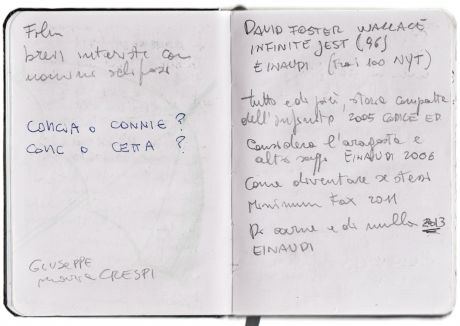 Film
brevi interviste con
uomini schifosi
CONCIA o CONNIE ?
CONC o CETTA ?
GIUSEPPE
maria CRESPI
DAVID FOSTER WALLACE
INFINITE JEST (96)
EINAUDI (Trai 100 NYT)
tutto e di più, storia compatta
dell'infinito 2005 CODICE ED.
Considera l'aragosta e
altri saggi EINAUDI 2006
Come diventare se stessi
Minimum Fax 2011
Di carne e di nulla 2013
EINAUDI